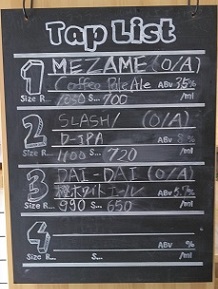 Tap List
1 MEZAME (O/A)
Coffee Pale Ale ABV 3.5%
Size R... 1050 S... 700 /ml
2 SLASH/ (O/A)
D-IPA ABV 8%
Size R... 1100 S... 720 /ml
3 DAI-DAI (O/A)
ABV 5.7%
Size R... 990 S... 650 /ml
4
ABV %
Size R... S... /ml